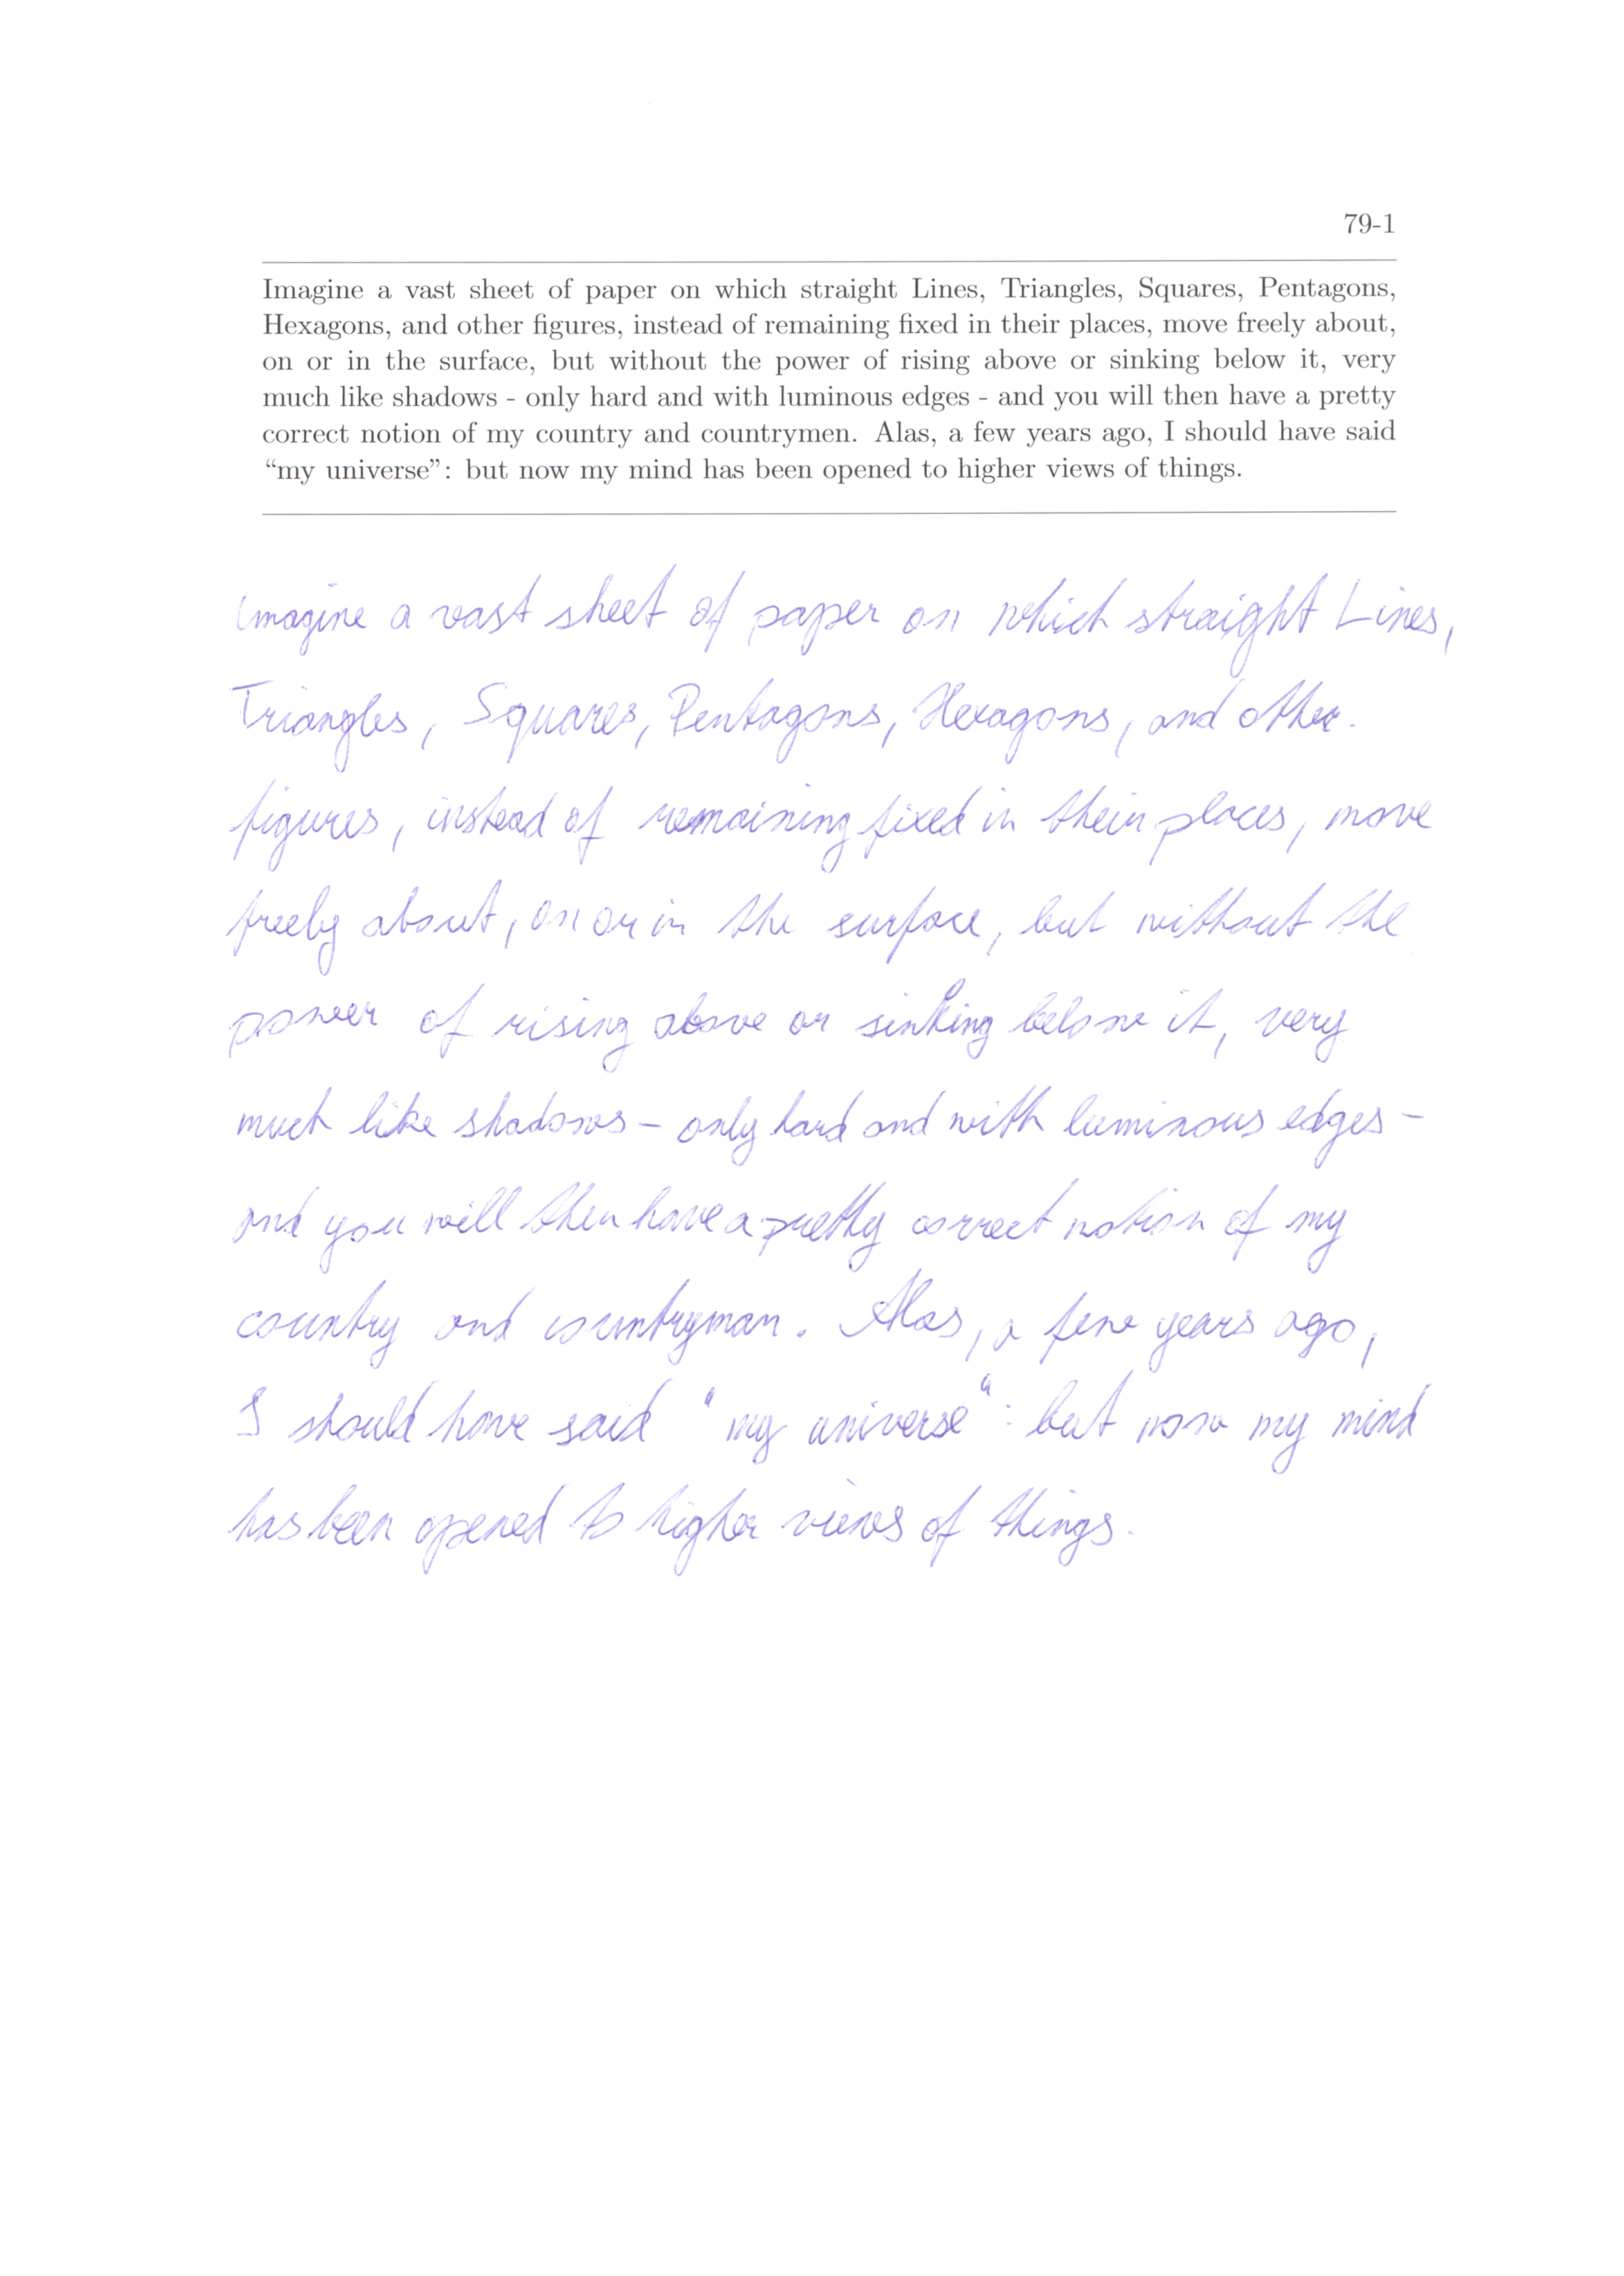 79-1
Imagine a vast sheet of paper on which straight Lines, Triangles, Squares, Pentagons,
Hexagons, and other figures, instead of remaining fixed in their places, move freely about,
on or in the surface, but without the power of rising above or sinking below it, very
much like shadows - only hard and with luminous edges - and you will then have a pretty
correct notion of my country and countrymen. Alas, a few years ago, I should have said
“my universe”: but now my mind has been opened to higher views of things.
Imagine a vast sheet of paper on which straight Lines,
Triangles, Squares, Pentagons, Hexagons, and other
figures, instead of remaining fixed in their places, move
freely about, on or in the surface, but without the
power of rising above or sinking below it, very
much like shadows – only hard and with luminous edges –
and you will then have a pretty correct notion of my
country and countryman. Alas, a few years ago,
I should have said "my universe": but now my mind
has been opened to higher views of things.